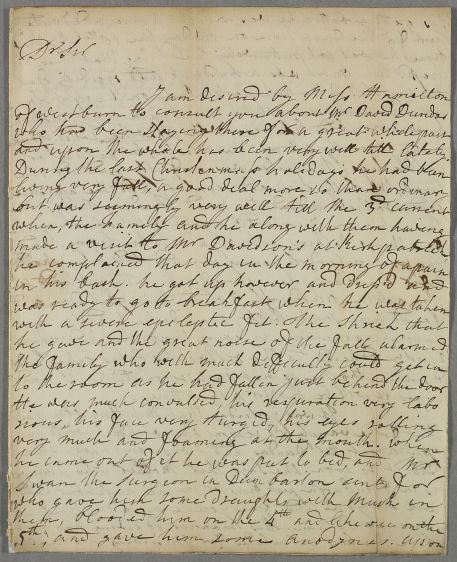 Dr Sir
I am desired by Miss Hamilton
of Westburn to consult you about Mr David Dundas
who has been staying there for a great while past
and upon the whole has been very well till late.
During the last Christenmass holidays he had been
living very full, a good deal more so than ordinar
but was seemingly very well till the 3d current
when the family and he along with them having
made a visit to Mr Davidson's at Kirkpatrick
he complained that day in the morning of a pain
in his back. he got up however and dress'd and
was ready to go to breakfast when he was taken
with a severe epileptic fit. The shriek that
he gave and the great noise of the fall alarmed
the family who with much difficulty could get in
to the room as he had fallen just behind the door
He was much convulsed his respiration very labo
rious, his face very turgid, his eyes rolling
very much and foaming at the mouth. When
he came out of it he was put to bed, and Mr
Swan the surgeon in Dunbarton sent for
who gave him some draughts with Musk in
them, blooded him on the 4th and on the
5th, and gave him some anodynes. upon